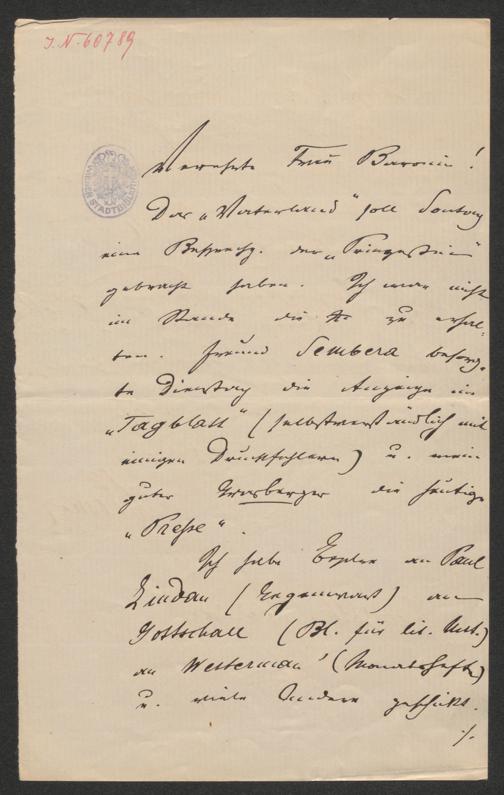 I.N. 60789
Verehrte Frau Baronin!
Das „Vaterland" soll Sontag
eine Besprechg. der „Prinzessin"
gebracht haben. Ich war nicht
im Stande die zu erhal-
ten. Freund Sembera besorg-
te Dienstag die Anzeige im
„Tagblatt" (selbstverständlich mit
einigen Druckfehlern) u. mein
guter Grasberger die heutige
„Presse".
Ich habe Expler an Paul
Lindau (Gegenwart) an
Gottschall (Bl. für lit. Unt.)
an Westerman' (Monatshefte)
u. viele Andere geschickt.
·/.